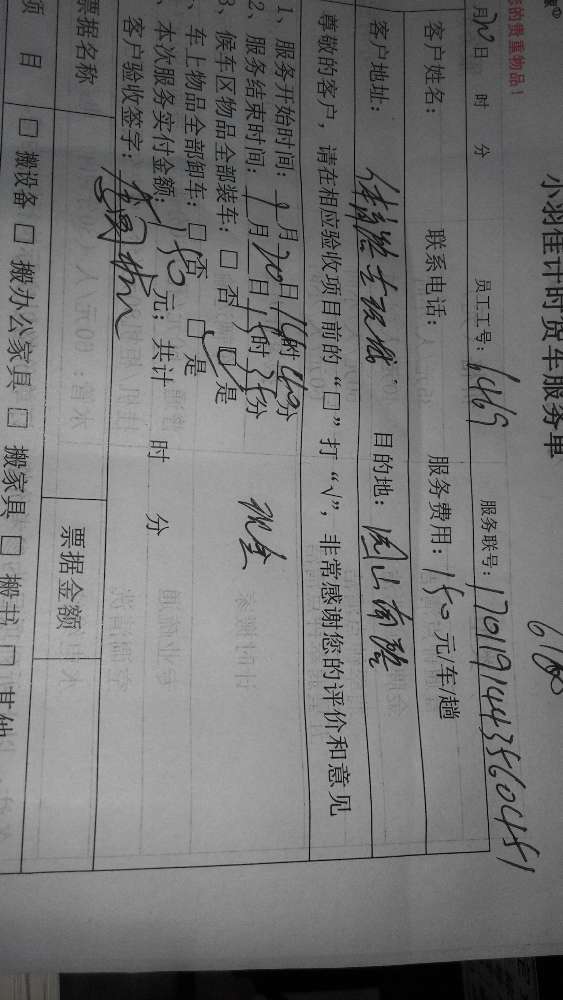 您的贵重物品！
小羽佳计时货车服务单
月20日 时 分 员工工号：6469 服务联号：1701191443560451
客户姓名： 联系电话： 服务费用：150元/车/趟
客户地址： 目的地：
尊敬的客户，请在相应验收项目前的“□”打“√”，非常感谢您的评价和意见
1、服务开始时间：1月20日14时40分
2、服务结束时间：1月20日15时35分 现金
3、候车区物品全部装车：□ 否 □ 是
、车上物品全部卸车：□ 否 □ 是
、本次服务实付金额：150元；共计 时 分
客户验收签字：
票据名称 票据金额
项 目 □ 搬设备 □ 搬办公家具 □ 搬家具 □ 搬书 □ 其他